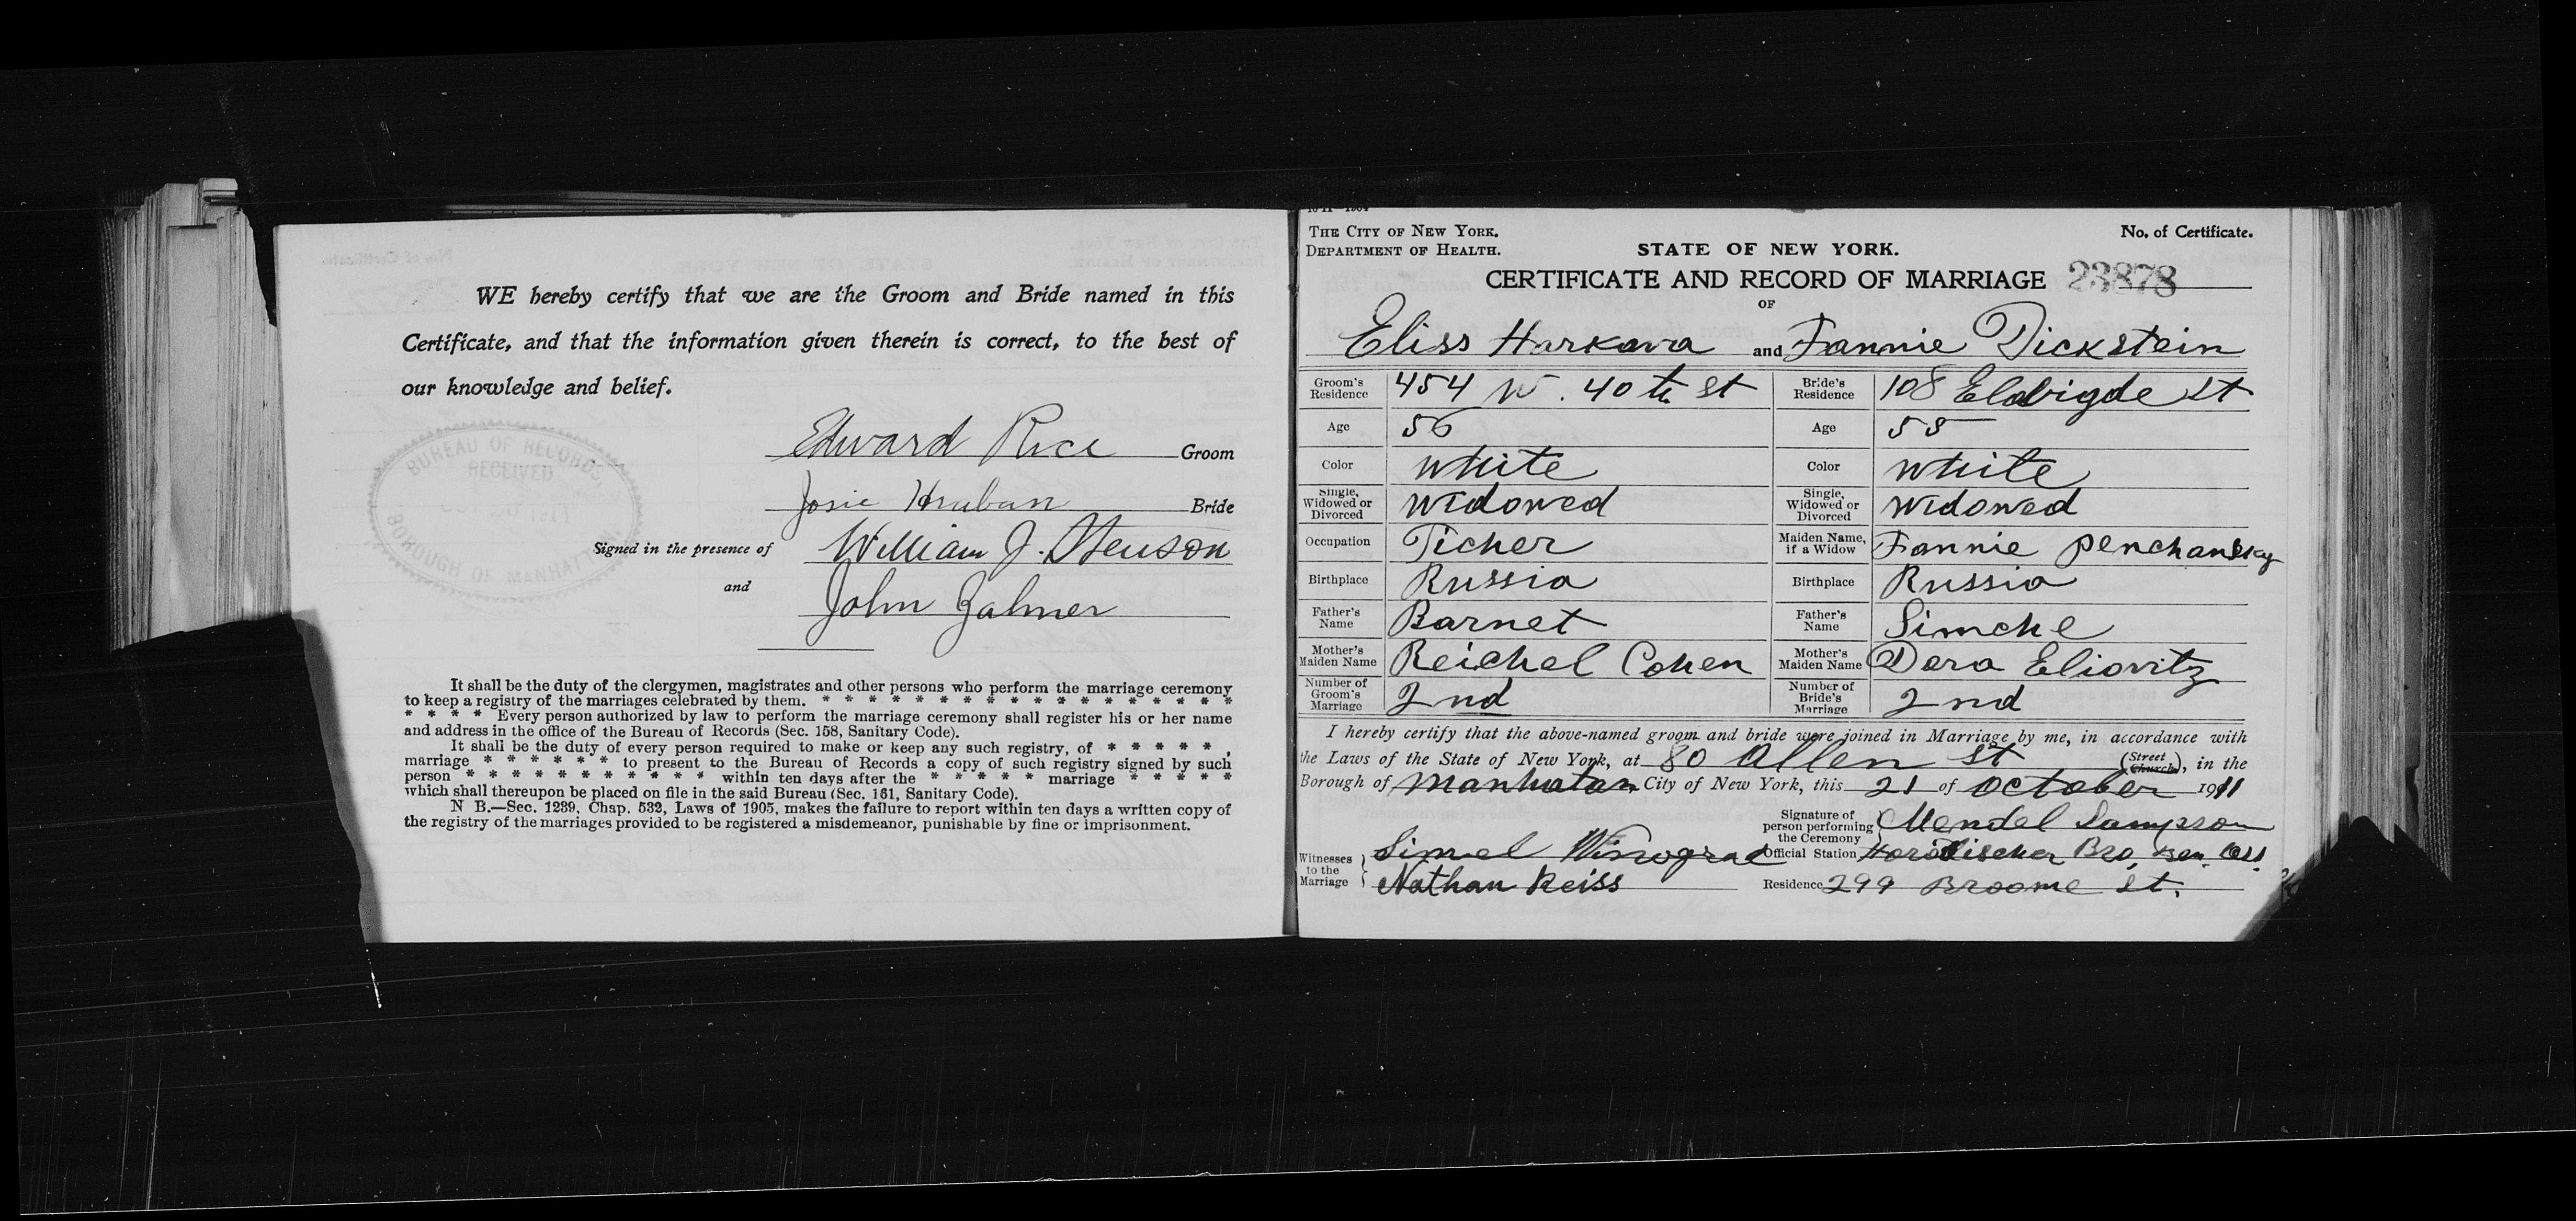 WE hereby certify that we are the Groom and Bride named in this
Certificate, and that the information given therein is correct, to the best of
our knowledge and belief.
Edward Rice Groom
Josie Hruban Bride
Signed in the presence of William J. Stenson
and
John Zahner
BUREAU OF RECORDS
RECEIVED
1911
BOROUGH OF MANHATTAN
It shall be the duty of the clergymen, magistrates and other persons who perform the marriage ceremony
to keep a registry of the marriages celebrated by them. * * * * * * * * * * * * * * * * * *
* * * * Every person authorized by law to perform the marriage ceremony shall register his or her name
and address in the office of the Bureau of Records (Sec. 158, Sanitary Code).
It shall be the duty of every person required to make or keep any such registry, of * * * * * ,
marriage * * * * * * to present to the Bureau of Records a copy of such registry signed by such
person * * * * * * * * * * * within ten days after the * * * * * marriage * * * * *
which shall thereupon be placed on file in the said Bureau (Sec. 161, Sanitary Code).
N B.—Sec. 1239, Chap. 532, Laws of 1905, makes the failure to report within ten days a written copy of
the registry of the marriages provided to be registered a misdemeanor, punishable by fine or imprisonment.
THE CITY OF NEW YORK.
DEPARTMENT OF HEALTH.
STATE OF NEW YORK.
No. of Certificate.
CERTIFICATE AND RECORD OF MARRIAGE 23878
OF
Eliss Harkava and Fannie Dickstein
Groom's Residence 454 W. 40th St Bride's Residence 108 Eldrigde St
Age 56 Age 55
Color White Color White
Single, Widowed or Divorced Widowed Single, Widowed or Divorced Widowed
Occupation Ticher Maiden Name, if a Widow Fannie Penchansky
Birthplace Russia Birthplace Russia
Father's Name Barnet Father's Name Simche
Mother's Maiden Name Reichel Cohen Mother's Maiden Name Dera Eliovitz
Number of Groom's Marriage 2nd Number of Bride's Marriage 2nd
I hereby certify that the above-named groom and bride were joined in Marriage by me, in accordance with
the Laws of the State of New York, at 80 Allen St (Street Church), in the
Borough of Manhatan City of New York, this 21 of October 1911
Signature of person performing the Ceremony Mendel Sampson
Witnesses to the Marriage Simel Winograd Official Station Bro. Ben.
Nathan Reiss Residence 299 Broome St.